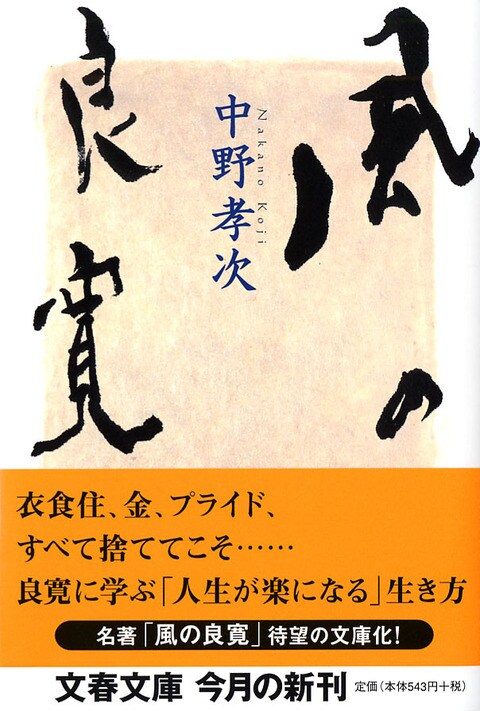 風の
良寛
中野孝次
Nakano Koji
衣食住、金、プライド、
すべて捨ててこそ……
良寛に学ぶ「人生が楽になる」生き方
名著「風の良寛」待望の文庫化!
文春文庫 今月の新刊 定価(本体543円+税)